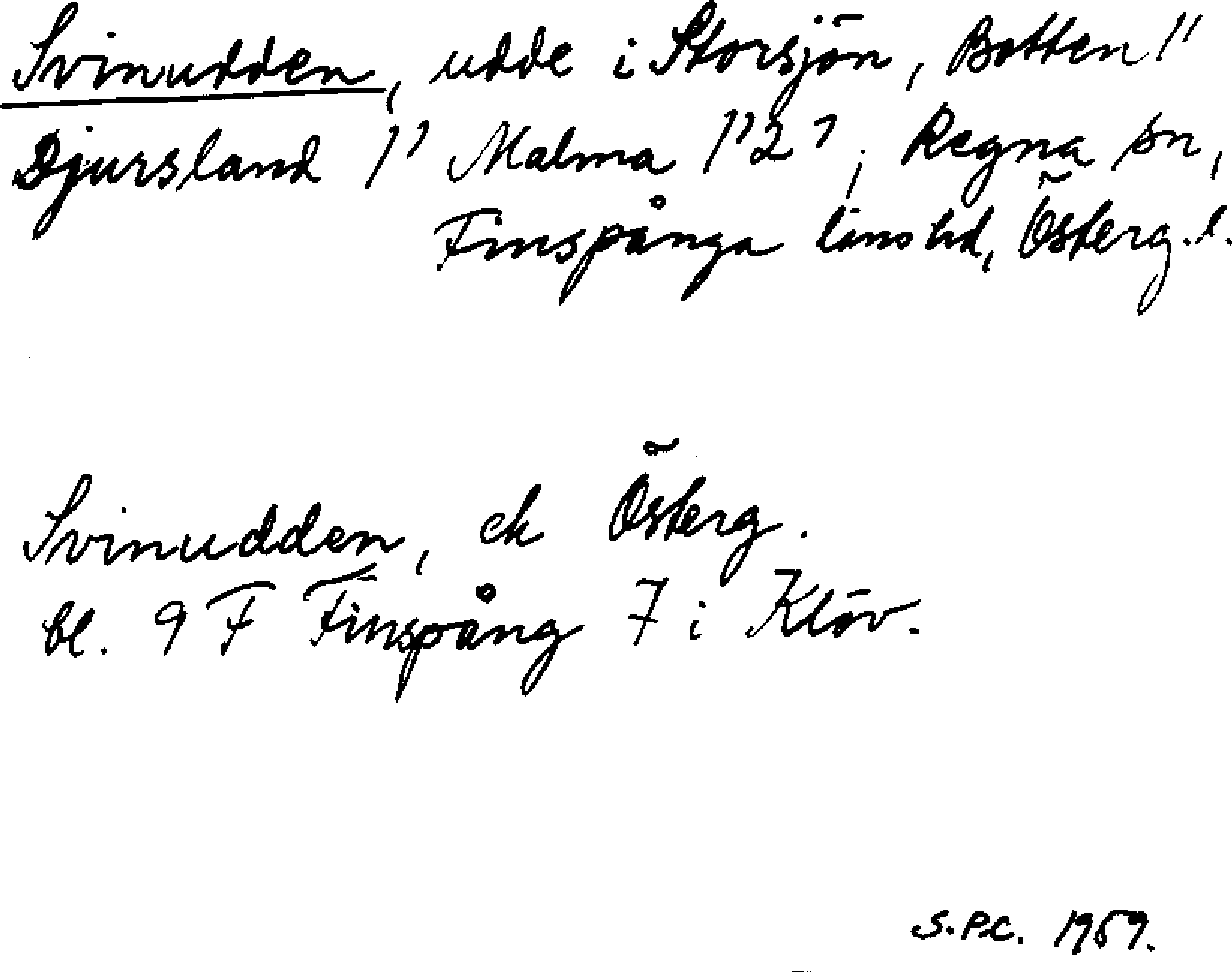 Svinudden, udde i Storsjön, Botten 1"
Djursland 1' Malma 1"2', Regna sn,
Finspånga läns hd, Österg. l.
Svinudden, ek Österg.
bl. 9 F Finspång 7 i Klöv.
S.P.C. 1969.